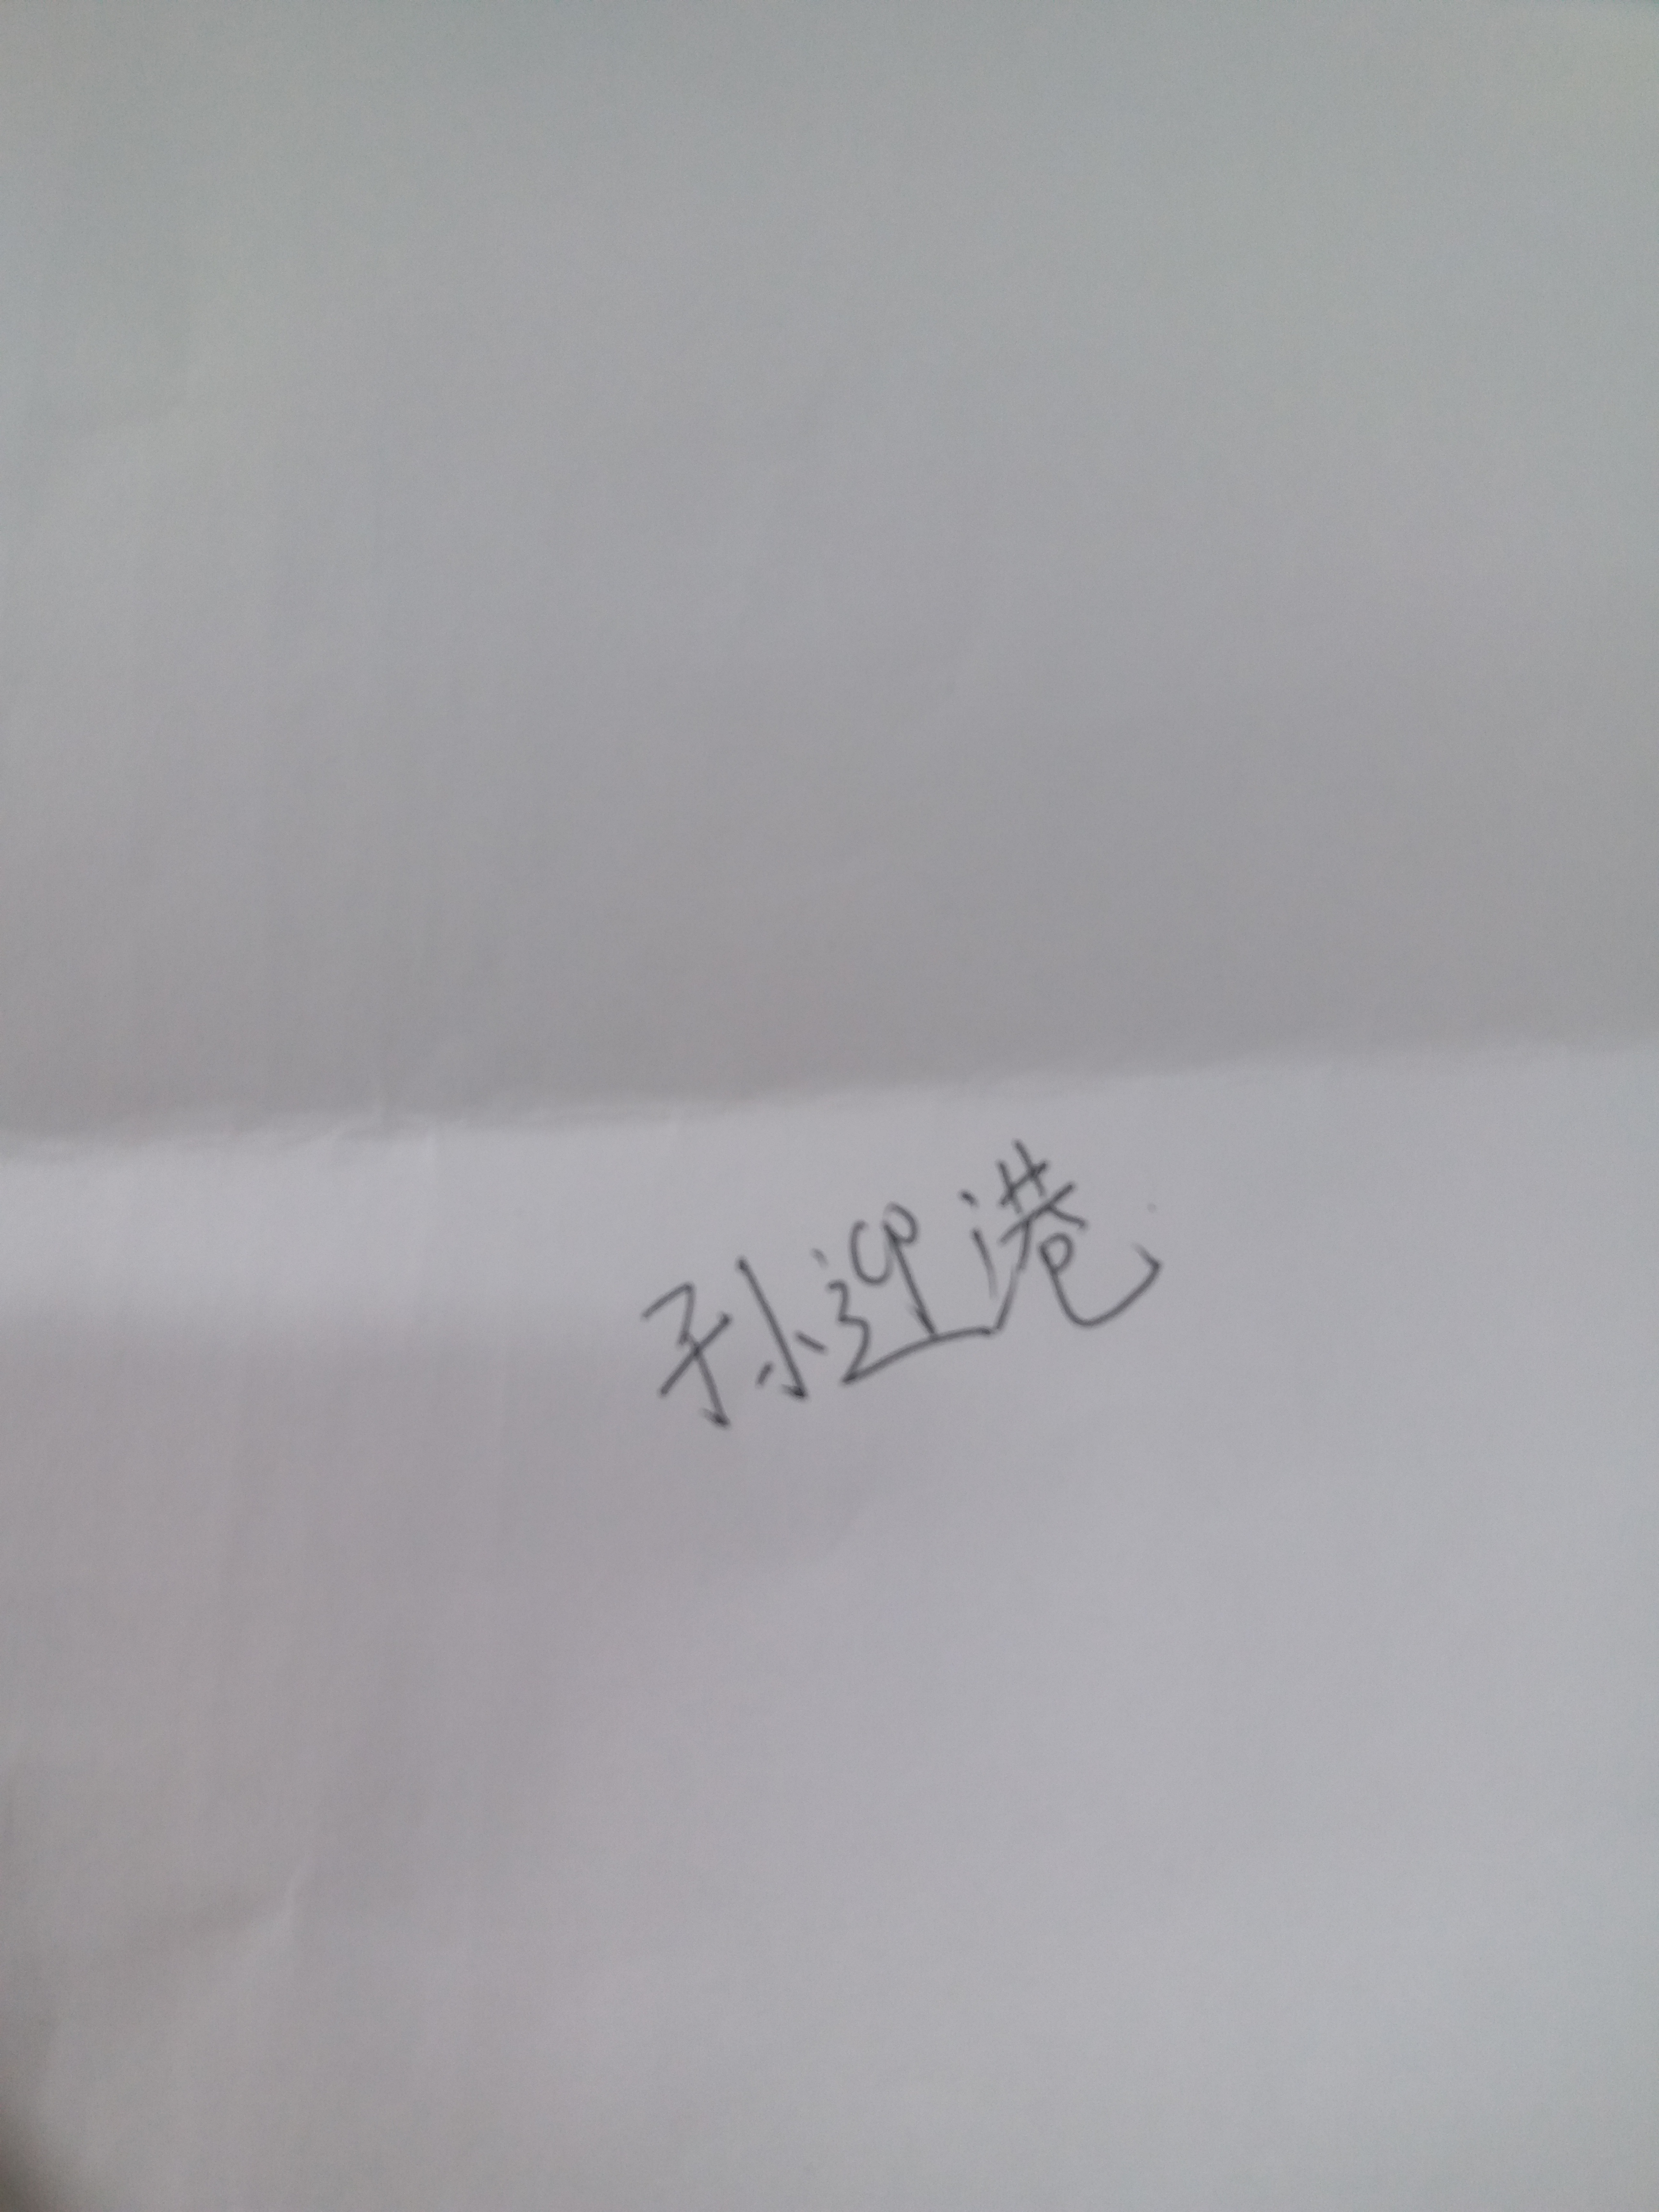 孙迎港